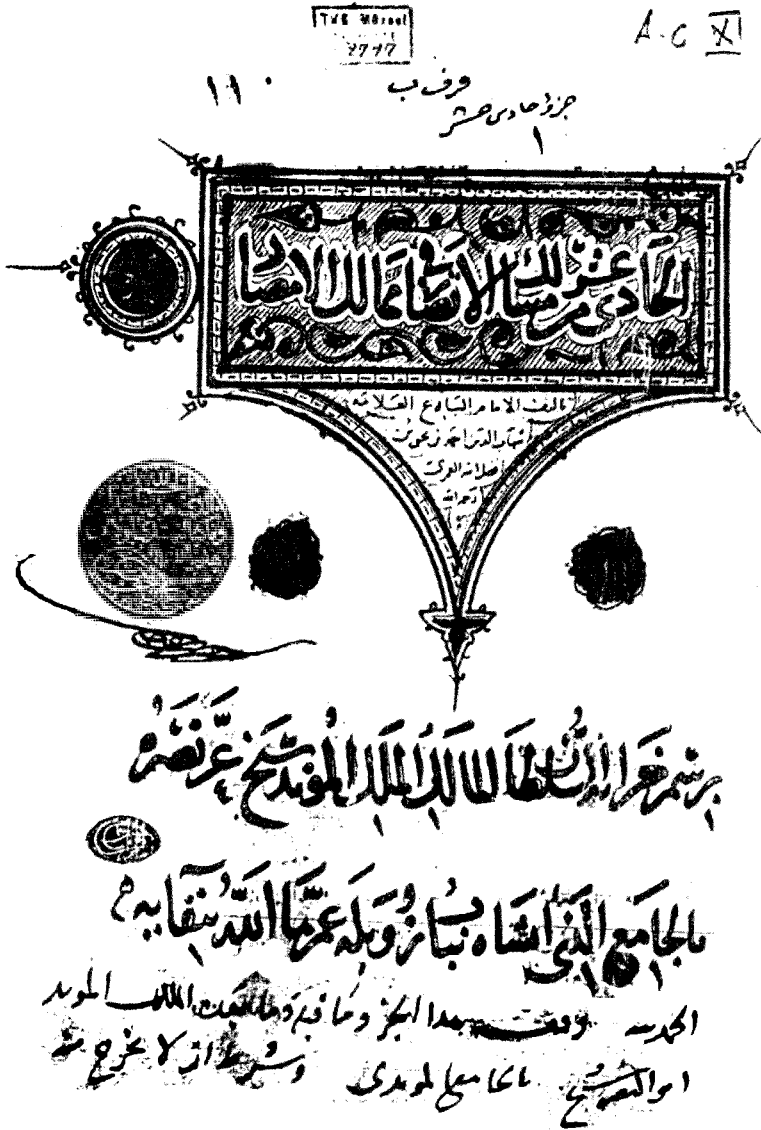 A.C XI
١١٠
جزؤ حادى عشر
١
الحادى عشر من مسالك الأبصار فى ممالك الأمصار
تاليف الامام البارع العلامه
شهاب الدين احمد بن يحيى
فضل الله العمرى
رحمه الله
برسم خزانة السلطان المالك الملك المؤيد شيخ عز نصره
بالجامع الذى انشاه بباب زويله عمرها الله ببقايه
الحمد لله وقف هذا الجزء وما قبله وما بعده الملك المويد
ابو النصر شيخ بالجامع المويدى وشرط ان لا يخرج منه